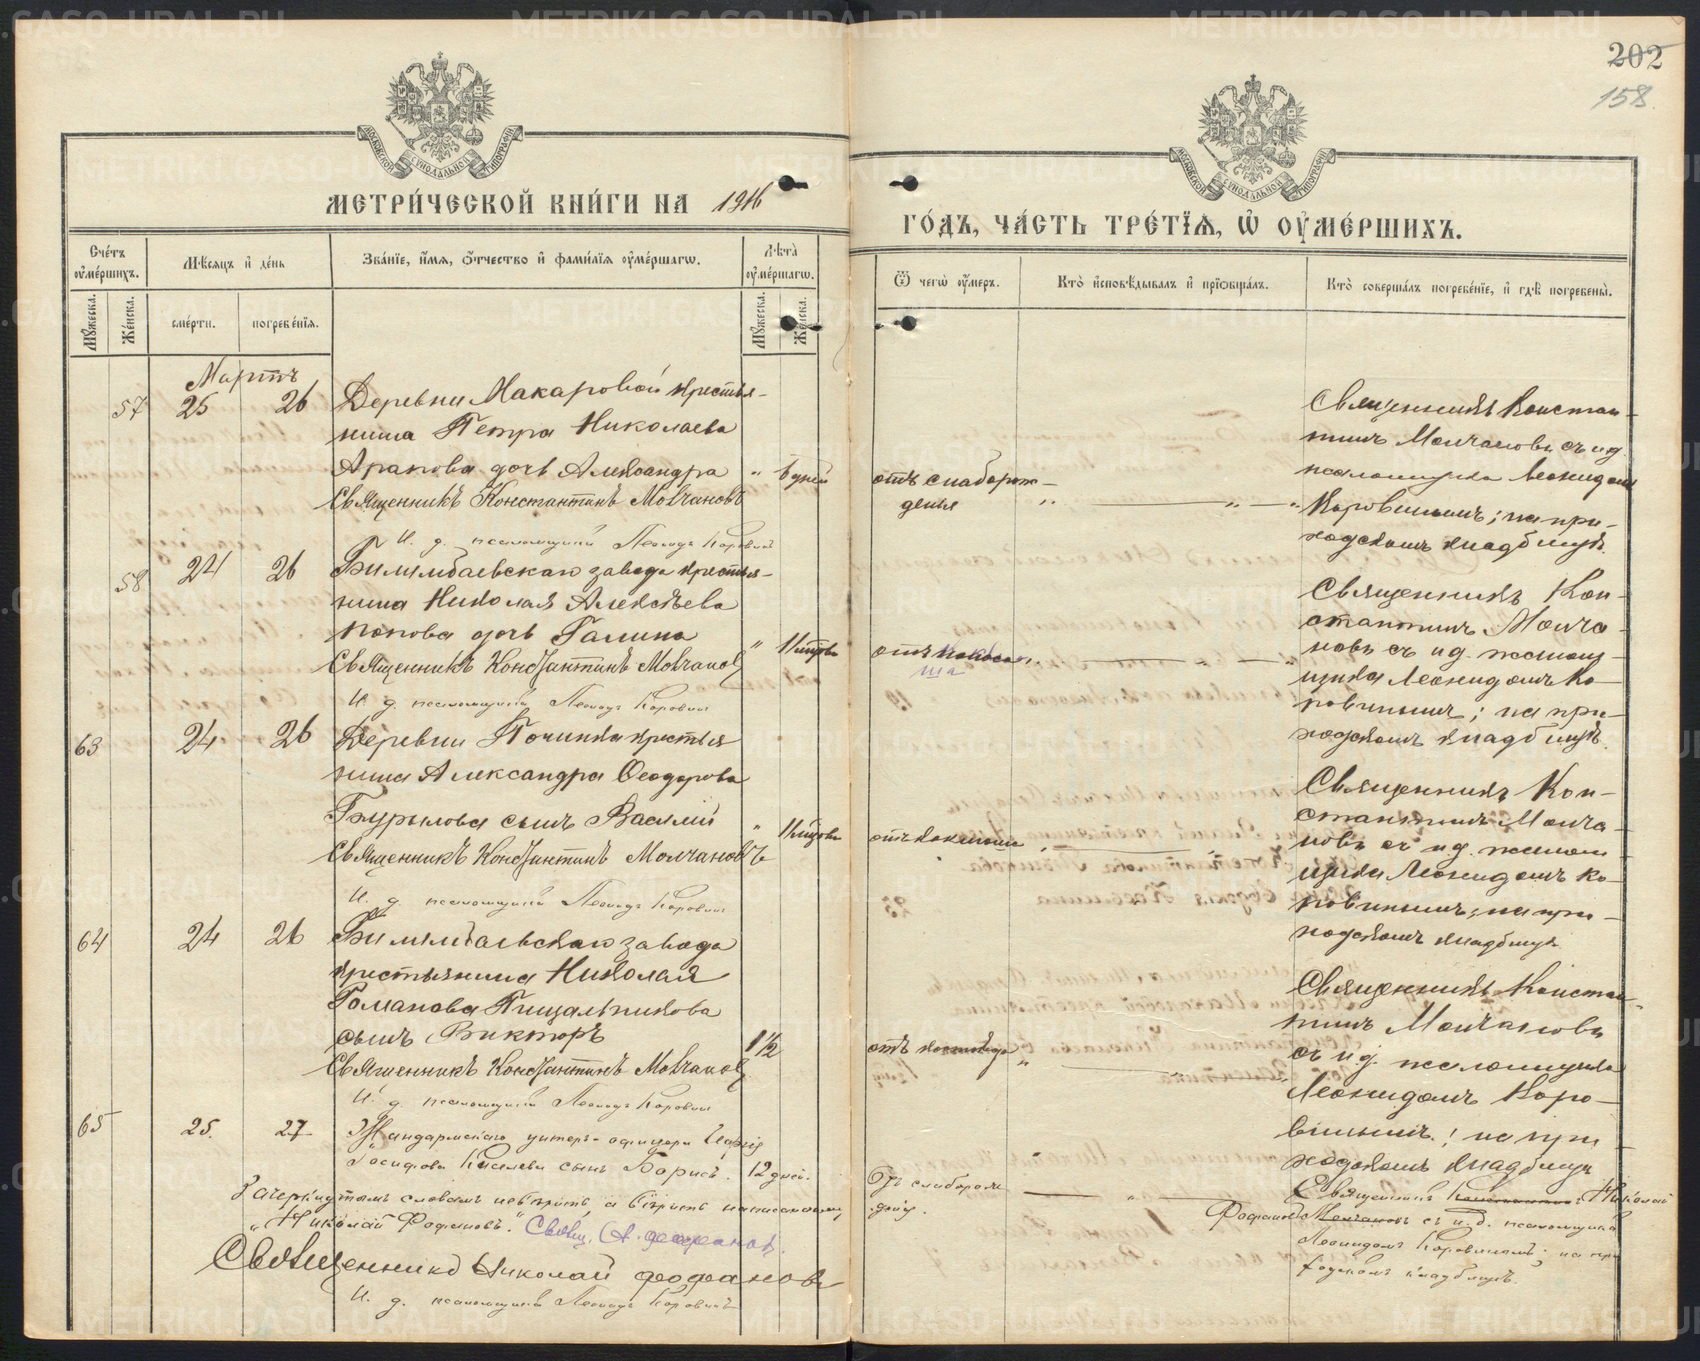 202
158.
МОСКОВСКОЙ СѴНОДАЛЬНОЙ ТИПОГРАФІИ
МОСКОВСКОЙ СѴНОДАЛЬНОЙ ТИПОГРАФІИ
МЕТРИ́ЧЕСКОЙ КНИ́ГИ НА 1916
ГО́ДЪ, ЧА́СТЬ ТРЕ́ТЇѦ, Ѽ ОУ҆МЕ́РШИХЪ.
Сче́тъ оу҆ме́ршихъ.
Мꙋжеска.
Же́нска.
Мѣ́сяцъ и҆ де́нь
сме́рти.
погребе́нїѧ.
Зва́нїе, и҆́мѧ, ѻ҆́тчество и҆ фами́лїѧ оу҆ме́ршагѡ.
Лѣта̀ оу҆ме́ршагѡ.
Мꙋжеска.
Же́нска.
Ѿ чегѡ̀ оу҆́меръ.
Кто̀ и҆сповѣ́дывалъ и҆ прїѡбща́лъ.
Кто̀ соверша́лъ погребе́нїе, и҆ гдѣ̀ погребены̀.
Мартъ
57 25 26 Деревни Макаровой крестья-
нина Петра Николаева
Арапова дочь Александра " 6 дней
Священникъ Константинъ Молчановъ
И. д. псаломщика Леонидъ Коровинъ
отъ слаборож-
денья
Священникъ Констан-
тинъ Молчановъ съ и д.
псаломщика Леонидомъ
Коровинымъ; на при-
ходскомъ кладбищѣ.
58 24 26 Билимбаевскаго завода крестья-
нина Николая Алексѣева
Попова дочь Галина "
Священникъ Константинъ Молчановъ
И. д. псаломщика Леонидъ Коровин
отъ
Священникъ Кон-
стантинъ Молча-
новъ съ и д. псалом-
щика Леонидомъ Ко-
ровинымъ; на при-
ходскомъ кладбищѣ.
63 24 26 Деревни Починка крестья
нина Александра Ѳеодорова
Бурылова сынъ Василій "
Священникъ Константинъ Молчановъ
И. д. псаломщика Леонидъ Коровин
отъ коклюша
Священникъ Кон-
стантинъ Молча-
новъ съ и д. псалом
щика Леонидомъ Ко-
ровинымъ; на при-
ходскомъ кладбищѣ
64 24 26 Билимбаевскаго завода
крестьянина Николая
Романова Пищальникова
сынъ Викторъ 1 1/2
Священникъ Константинъ Молчановъ
И. д. псаломщика Леонидъ Коровин
отъ
Священникъ Констан-
тинъ Молчановъ
съ и д. псаломщика
Леонидомъ Коро-
винымъ; на при
ходскомъ кладбищѣ
65 25. 27 Жандармскаго унтеръ-офицера
Іосифова Киселева сынъ Борисъ. 12 дней.
Отъ слаборож
Священникъ Константинъ Николай
Фофановъ Молчановъ съ и. д. псаломщика
Леонидомъ Коровинымъ; на при
ходскомъ кладбищѣ.
Зачеркнутымъ словамъ невѣрить, а вѣрить написанному
"Николай Фофановъ." Свящ. Н. Фофановъ.
Священникъ Николай Фофановъ
И. д. псаломщика Леонидъ Коровинъ
METRIKI.GASO-URAL.RU